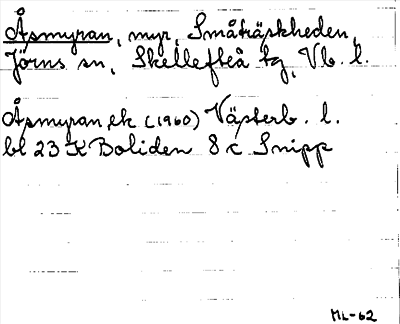 Åsmyran, myr, Småträskheden,
Jörns sn, Skellefteå tg, Vb. l.
Åsmyran, ek (1960) Västerb. l.
bl 23 K Boliden 8 c Snipp
ML-62